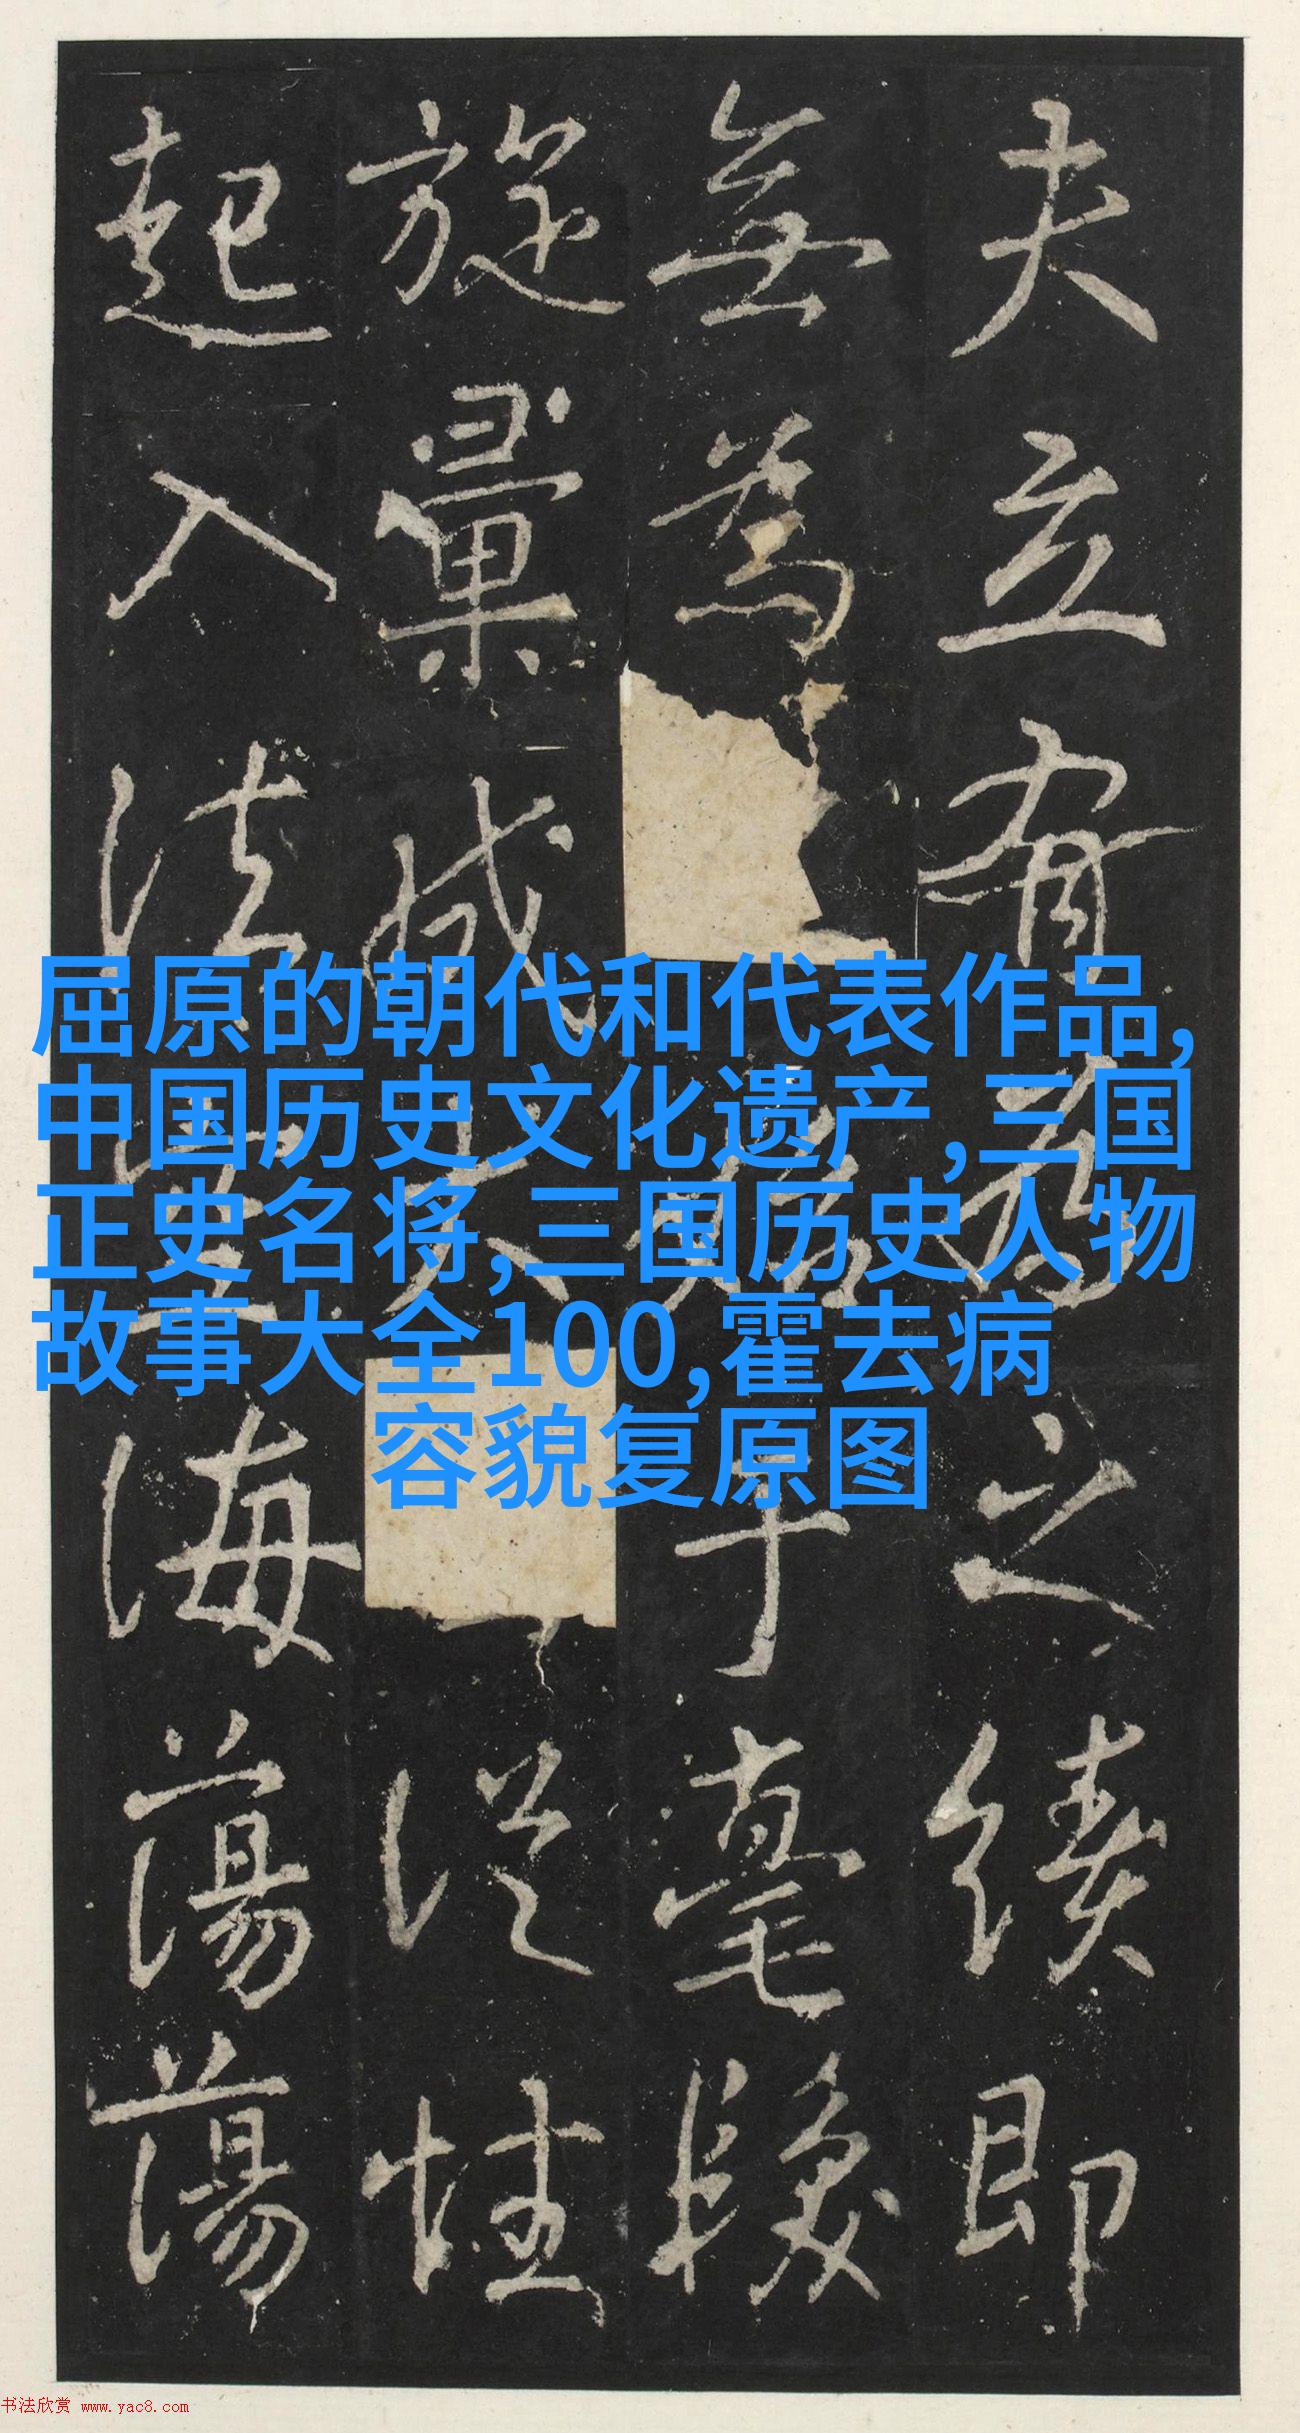 夫立有為之續即
無為于毫
旋彙成從性
起入法海蕩蕩
屈原的朝代和代表作品,
中国历史文化遗产,三国
正史名将,三国历史人物
故事大全100,霍去病
容貌复原图
书法欣赏 www.yac8.com